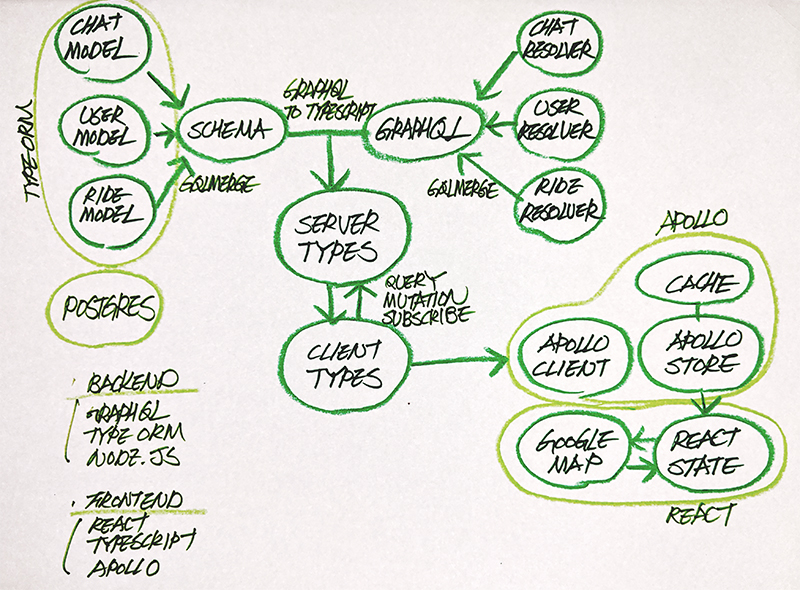 CHAT
MODEL
USER
MODEL
RIDE
MODEL
TYPE ORM
POSTGRES
SCHEMA
GQLMERGE
GRAPHQL
TO TYPESCRIPT
GRAPHQL
CHAT
RESOLVER
USER
RESOLVER
RIDE
RESOLVER
GQLMERGE
SERVER
TYPES
QUERY
MUTATION
SUBSCRIBE
CLIENT
TYPES
APOLLO
CACHE
APOLLO
CLIENT
APOLLO
STORE
GOOGLE
MAP
REACT
STATE
REACT
· BACKEND
GRAPHQL
TYPE ORM
NODE.JS
· FRONTEND
REACT
TYPESCRIPT
APOLLO